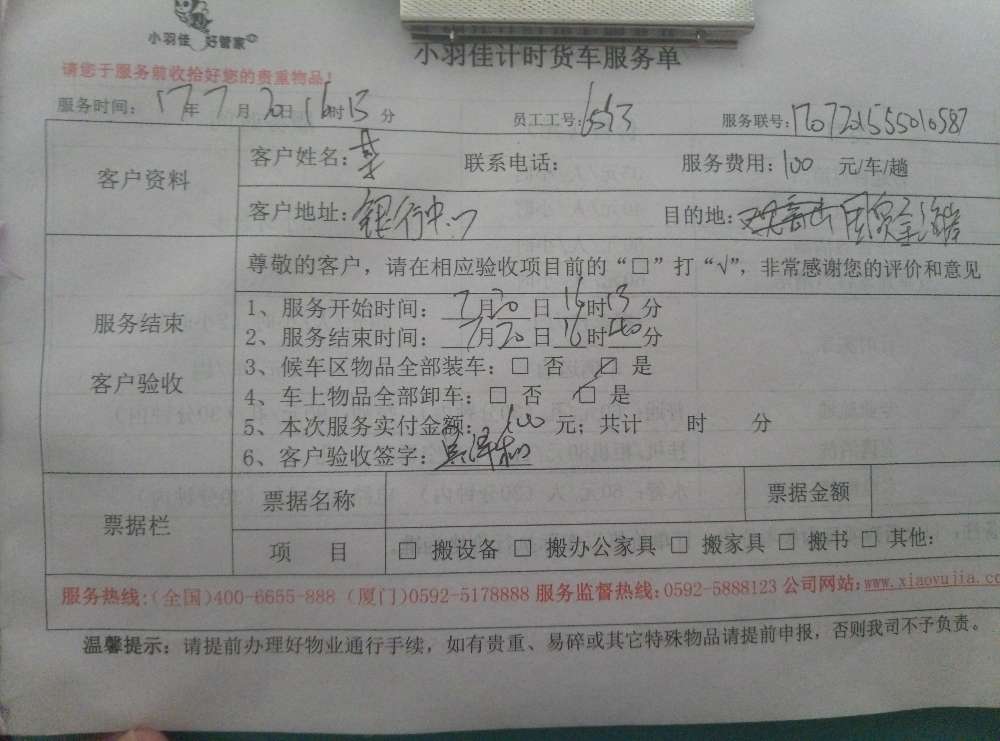 小羽佳 好管家
小羽佳计时货车服务单
请您于服务前收拾好您的贵重物品！
服务时间：17年7月20日16时13分 员工工号： 服务联号：1707201555010587
客户资料
客户姓名： 联系电话： 服务费用：100 元/车/趟
客户地址：银行中心 目的地：
尊敬的客户，请在相应验收项目前的“□”打“√”，非常感谢您的评价和意见
服务结束
客户验收
1、服务开始时间：7月20日16时13分
2、服务结束时间：7月20日16时40分
3、候车区物品全部装车：□ 否 ☑ 是
4、车上物品全部卸车：□ 否 ☑ 是
5、本次服务实付金额：100 元；共计 时 分
6、客户验收签字：
票据栏
票据名称 票据金额
项 目 □ 搬设备 □ 搬办公家具 □ 搬家具 □ 搬书 □ 其他：
服务热线：(全国)400-6655-888 (厦门)0592-5178888 服务监督热线：0592-5888123 公司网站：www.xiaoyujia.co
温馨提示：请提前办理好物业通行手续，如有贵重、易碎或其它特殊物品请提前申报，否则我司不予负责。